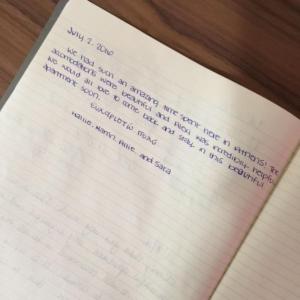 July 2, 2010
We had such an amazing time spent here in Athens! The
accomodations were beautiful and was incredibly helpful.
We would all love to come back and stay in this beautiful
apartment soon.
and Sara